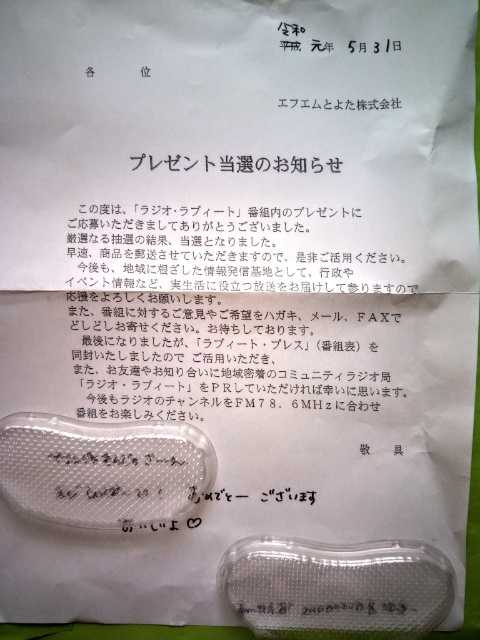 令和
平成 元年 5月31日
各 位
エフエムとよた株式会社
プレゼント当選のお知らせ
この度は、「ラジオ・ラブィート」番組内のプレゼントに
ご応募いただきましてありがとうございました。
厳選なる抽選の結果、当選となりました。
早速、商品を郵送させていただきますので、是非ご活用ください。
今後も、地域に根ざした情報発信基地として、行政や
イベント情報など、実生活に役立つ放送をお届けして参りますので
応援をよろしくお願いします。
また、番組に対するご意見やご希望をハガキ、メール、FAXで
どしどしお寄せください。お待ちしております。
最後になりましたが、「ラブィート・プレス」（番組表）を
同封いたしましたので ご活用いただき、
また、お友達やお知り合いに地域密着のコミュニティラジオ局
「ラジオ・ラブィート」をPRしていただければ幸いに思います。
今後もラジオのチャンネルをFM78．6MHzに合わせ
番組をお楽しみください。
敬 具
おめでとー ございます